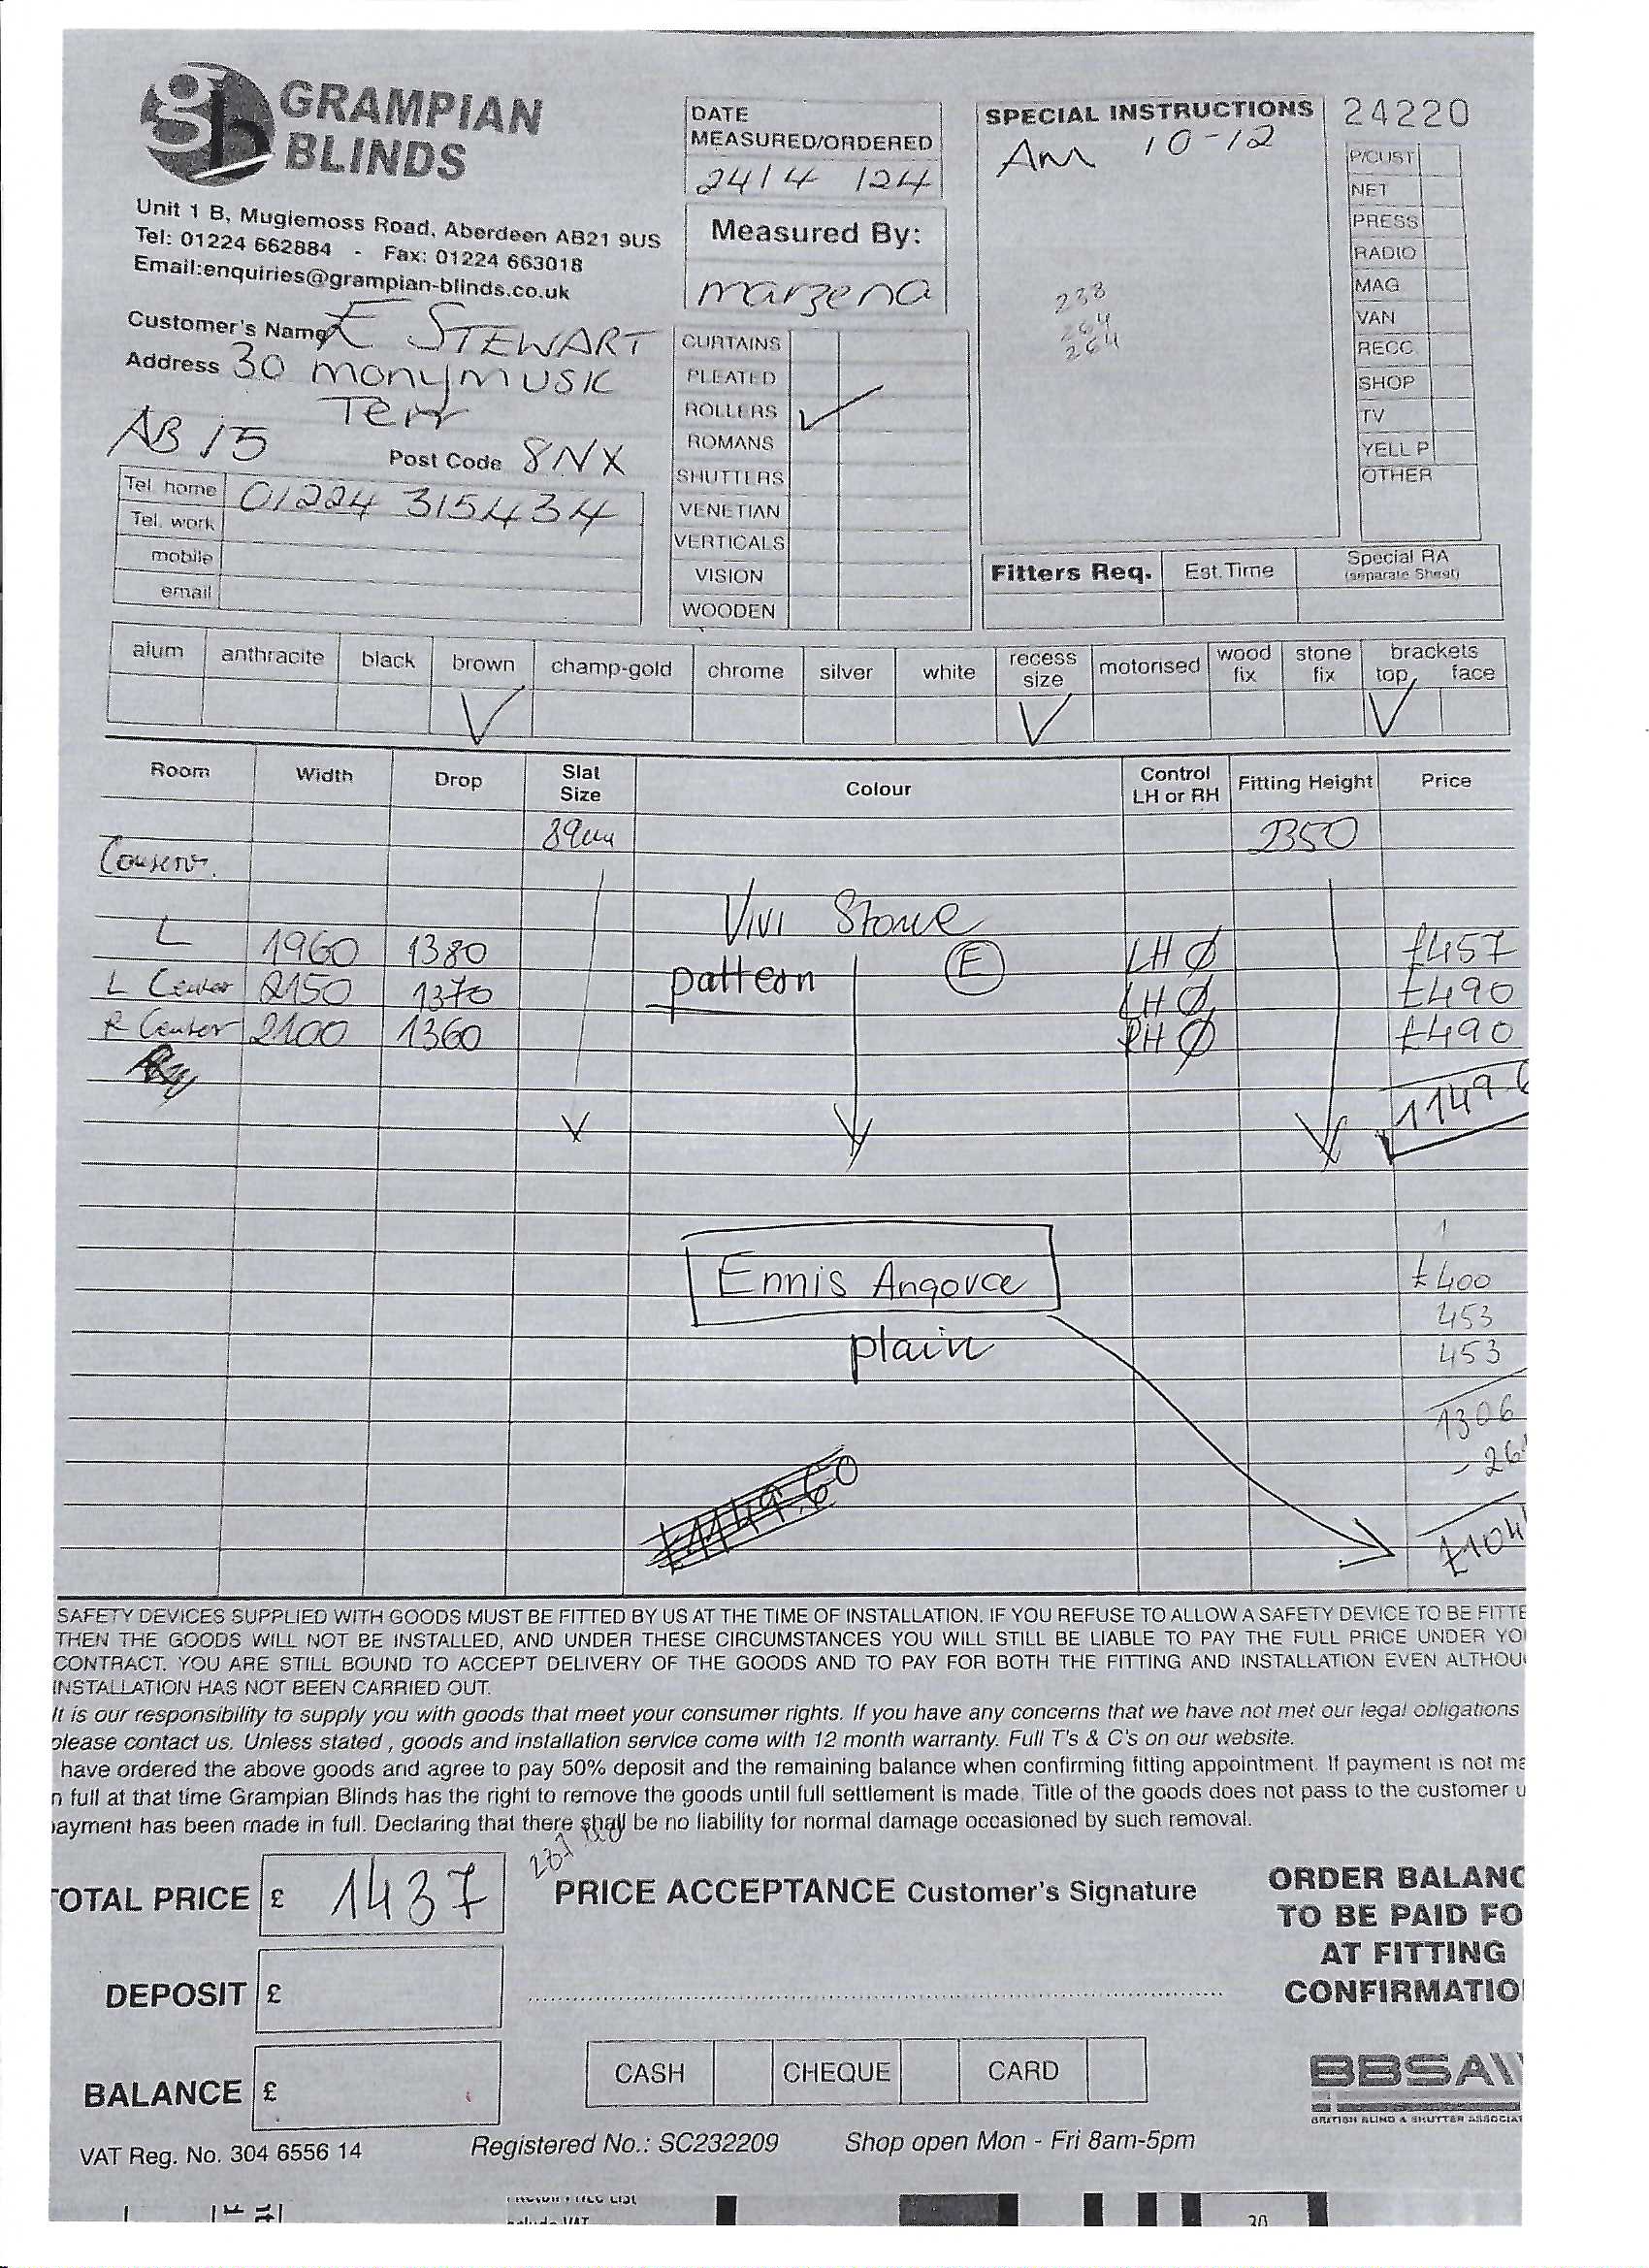 GRAMPIAN
BLINDS
gb
Unit 1 B, Muglemoss Road, Aberdeen AB21 9US
Tel: 01224 662884 - Fax: 01224 663018
Email:enquiries@grampian-blinds.co.uk
DATE
MEASURED/ORDERED
24/4/24
Measured By:
marzena
SPECIAL INSTRUCTIONS
AM 10-12
238
264
264
24220
P/CUST
NET
PRESS
RADIO
MAG
VAN
RECC
SHOP
TV
YELL P
OTHER
Customer's Name E STEWART
Address 30 monymusk
Terr
AB15
Post Code 8NX
Tel. home 01224 315434
Tel. work
mobile
email
CURTAINS
PLEATED
ROLLERS ✓
ROMANS
SHUTTERS
VENETIAN
VERTICALS
VISION
WOODEN
Fitters Req. Est. Time Special RA
(separate Sheet)
alum anthracite black brown champ-gold chrome silver white recess size motorised wood fix stone fix brackets top face
✓ ✓ ✓
Room Width Drop Slat Size Colour Control LH or RH Fitting Height Price
89mm 2350
Conserv.
Vivi Stone
L 1960 1380 LH Ø £457
pattern E
L Center 2150 1370 LH Ø £490
R Center 2100 1360 RH Ø £490
1149.6
Ennis Angovce
£400
453
plain
453
1306
- 26
£1149.60
£104
SAFETY DEVICES SUPPLIED WITH GOODS MUST BE FITTED BY US AT THE TIME OF INSTALLATION. IF YOU REFUSE TO ALLOW A SAFETY DEVICE TO BE FITTE
THEN THE GOODS WILL NOT BE INSTALLED, AND UNDER THESE CIRCUMSTANCES YOU WILL STILL BE LIABLE TO PAY THE FULL PRICE UNDER YO
CONTRACT. YOU ARE STILL BOUND TO ACCEPT DELIVERY OF THE GOODS AND TO PAY FOR BOTH THE FITTING AND INSTALLATION EVEN ALTHOU
INSTALLATION HAS NOT BEEN CARRIED OUT.
It is our responsibility to supply you with goods that meet your consumer rights. If you have any concerns that we have not met our legal obligations
please contact us. Unless stated , goods and installation service come with 12 month warranty. Full T's & C's on our website.
have ordered the above goods and agree to pay 50% deposit and the remaining balance when confirming fitting appointment. If payment is not ma
n full at that time Grampian Blinds has the right to remove the goods until full settlement is made. Title of the goods does not pass to the customer u
ayment has been made in full. Declaring that there shall be no liability for normal damage occasioned by such removal.
TOTAL PRICE £ 1437
PRICE ACCEPTANCE Customer's Signature
ORDER BALANC
TO BE PAID FO
AT FITTING
CONFIRMATIO
DEPOSIT £
BALANCE £
CASH CHEQUE CARD
BBSA
BRITISH BLIND & SHUTTER ASSOCIAT
VAT Reg. No. 304 6556 14
Registered No.: SC232209
Shop open Mon - Fri 8am-5pm
30